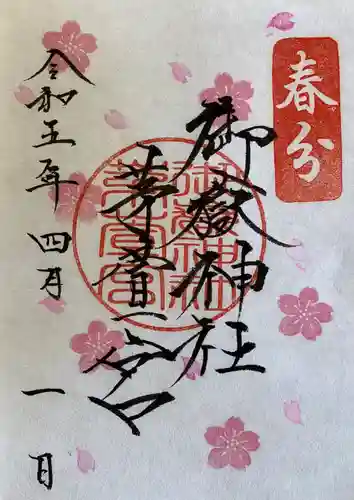 春分
御嶽神社
茅萱宮
令和五年 四月 一日